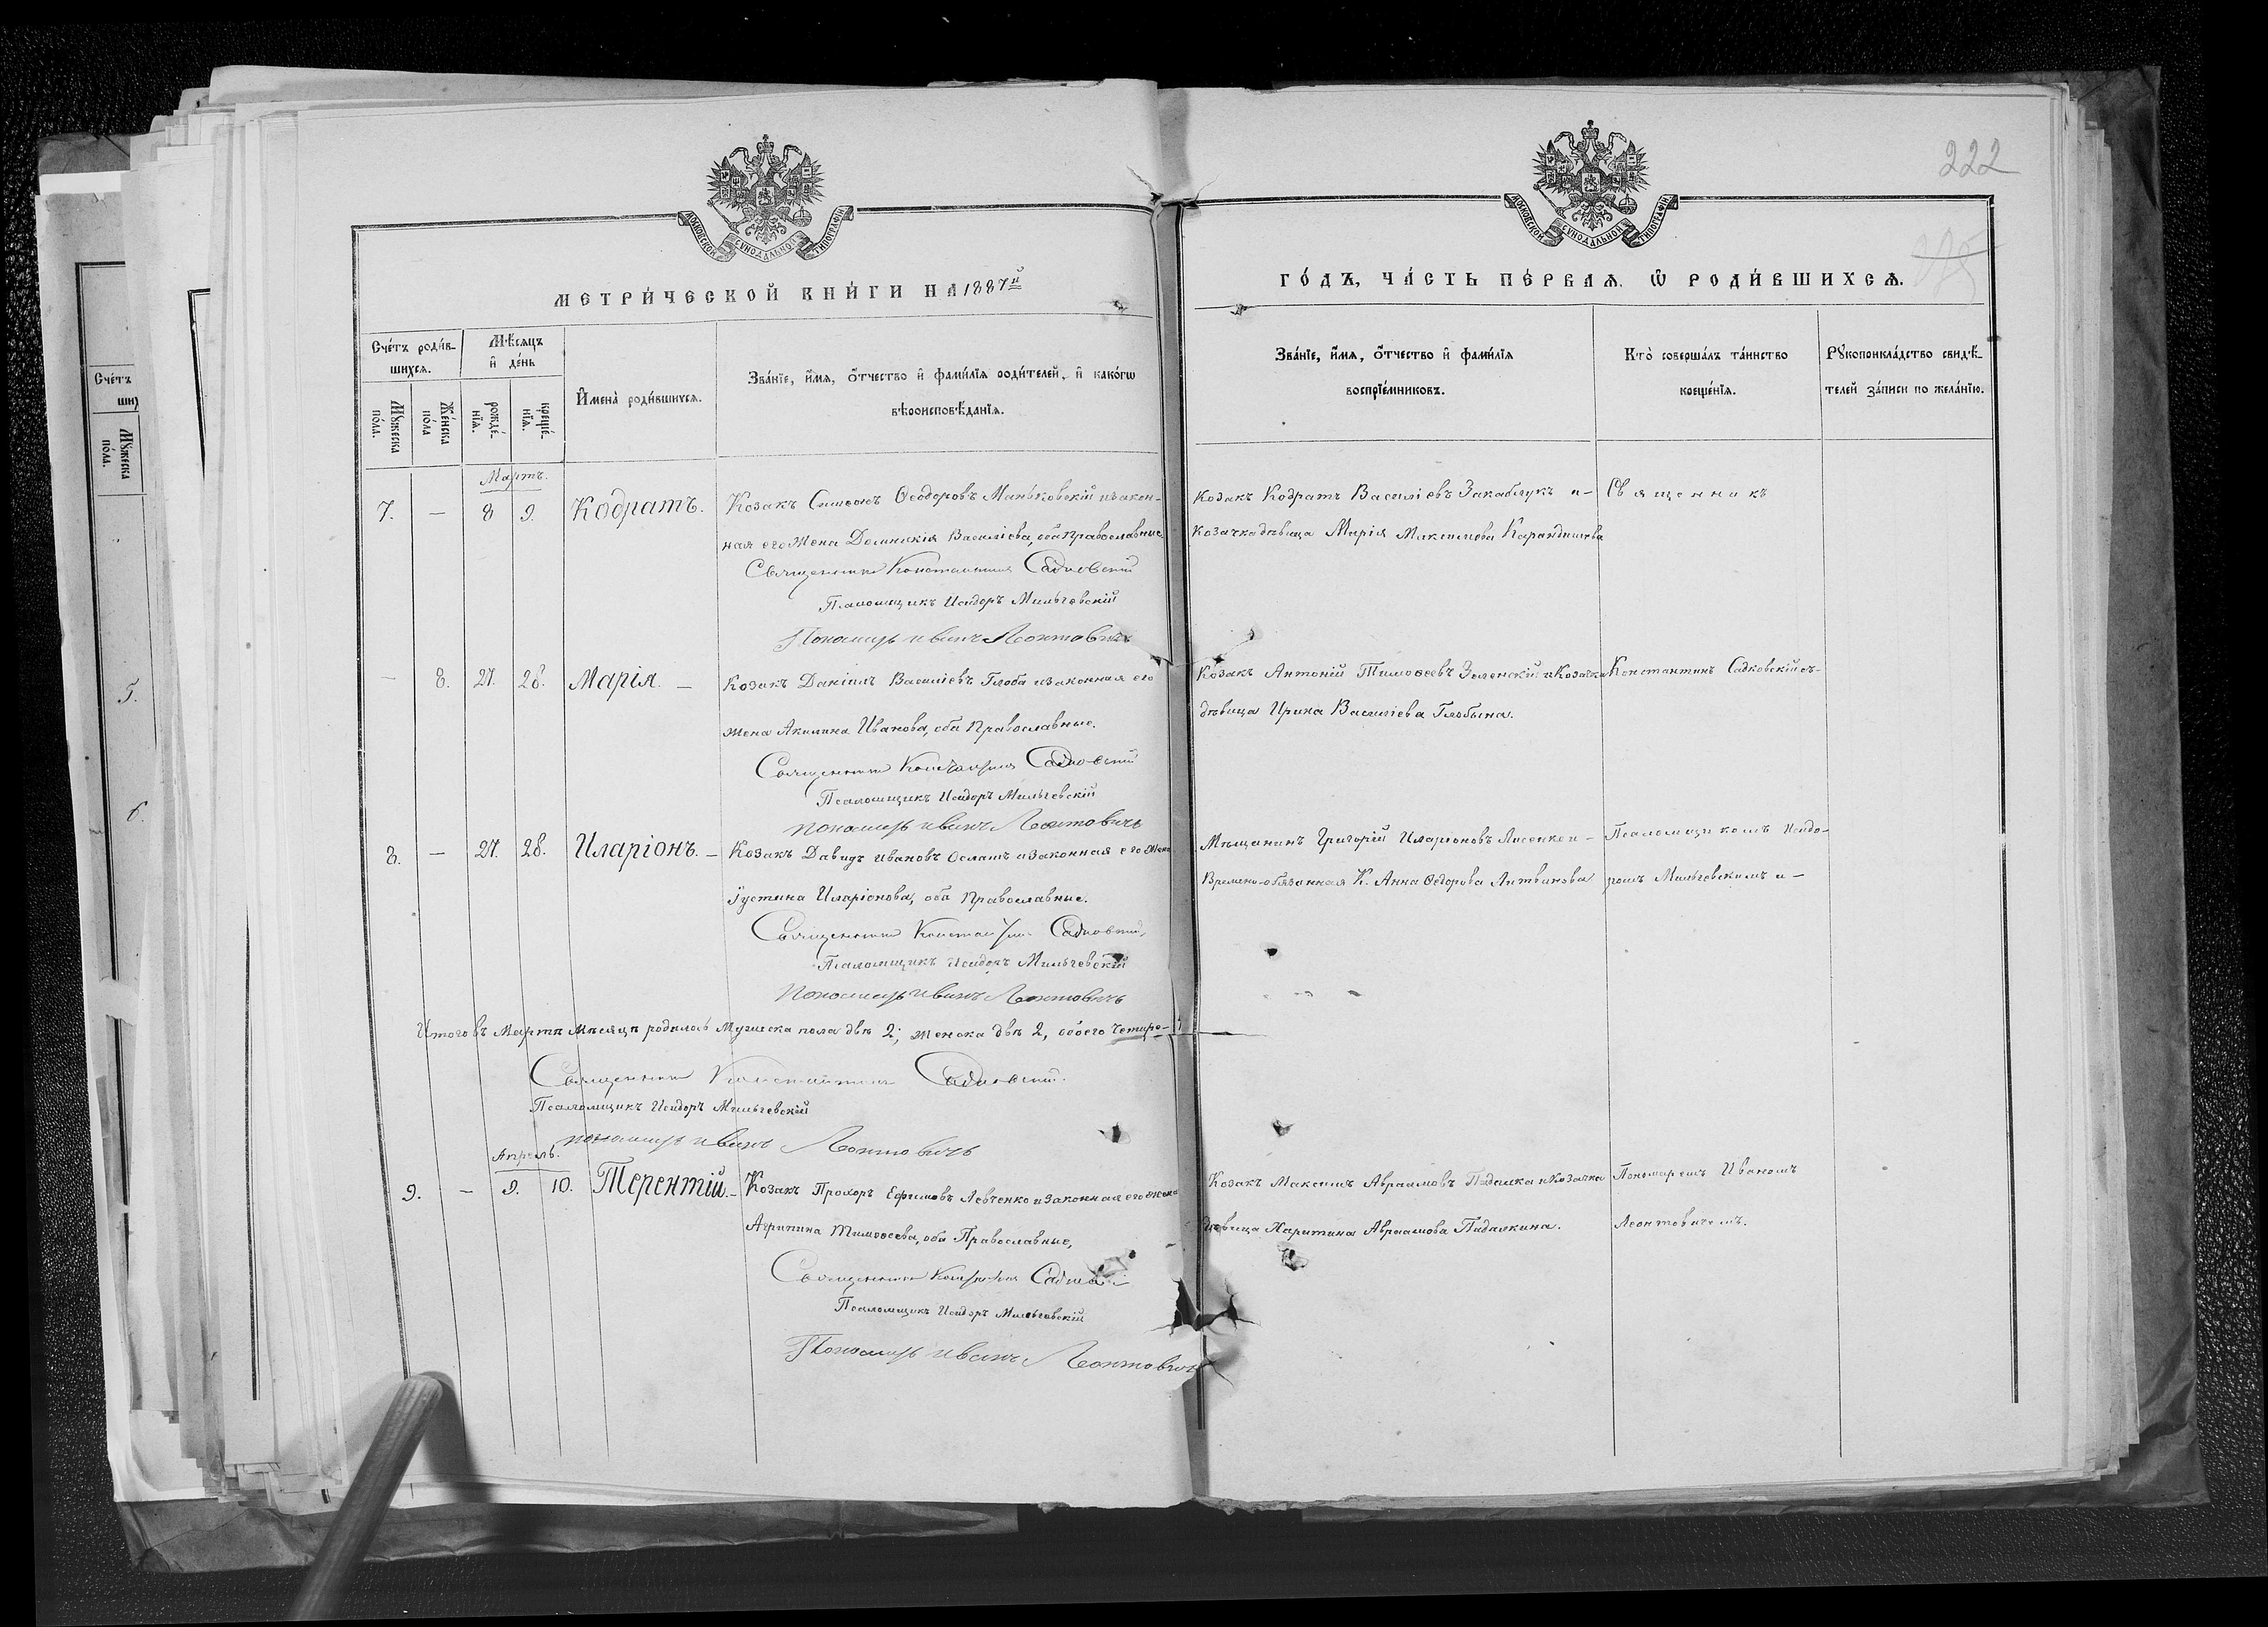 222
МОСКОВСКОЙ СѴНОДАЛЬНОЙ ТИПОГРАФІИ
МОСКОВСКОЙ СѴНОДАЛЬНОЙ ТИПОГРАФІИ
МЕТРИ́ЧЕСКОЙ КНИ́ГИ НА 1887й
ГО́ДЪ, ЧА́СТЬ ПЕ́РВАѦ. Ѡ РОДИ́ВШИХСѦ.
Сче́тъ роди́в-
шихсѧ.
Мꙋ́жеска
по́ла.
Же́нска
по́ла
Мѣ́сѧцъ
и҆ де́нь
рожде́-
нїѧ.
креще́-
нїѧ.
И҆мена̀ роди́вшихсѧ.
Зва́нїе, и҆́мѧ, ѻ҆́тчество и҆ фами́лїѧ роди́телей, и҆ како́гѡ
вѣроисповѣ́данїѧ.
Зва́нїе, и҆́мѧ, ѻ҆́тчество и҆ фами́лїѧ
воспрїе́мниковъ.
Кто̀ соверша́лъ та́инство
креще́нїѧ.
Рꙋкоприкла́дство свидѣ́-
телей за́писи по жела́нїю.
Сче́тъ
ших
Мꙋ́жеска
по́ла.
5.
6.
Мартъ.
7. — 8 9. Кодратъ. Козакъ Симеонъ Ѳеодоровъ Маньковскій изакон-
ная его Жена Домникія Василіева, оба православные
Священникъ Константинъ Садковскій
Псаломщикъ Исидоръ Мильгевскій
Пономарь Иванъ Леонтовичъ
Козакъ Кодратъ Василіевъ Закаблукъ и—
Козачка дѣвица Марія Максимова
Священникъ
— 8. 27. 28. Марія. — Козакъ Даніилъ Василіевъ Глоба изаконная его
жена Акилина Иванова, оба Православные.
Священникъ Константинъ Садковскій
Псаломщикъ Исидоръ Мильгевскій
пономарь Иванъ Леонтовичъ
Козакъ Антоній Тимоѳеевъ Зеленскій и Козачка
дѣвица Ирина Василіева Глобына.
Константинъ Садковскій съ-
8. — 27. 28. Иларіонъ. — Козакъ Давидъ Ивановъ Ослатъ изаконная его Жена
Іустина Иларіонова, оба Православные.
Священникъ Константинъ Садковскій
Псаломщикъ Исидоръ Мильгевскій
Пономарь Иванъ Леонтовичъ
Мѣщанинъ Григорій Иларіоновъ Лисенко и—
Временно-обязанная К. Анна Ѳедорова Литвинова
Псаломщикомъ Исидо-
ромъ Мильгевскимъ и—
Итого въ Мартѣ Мѣсяцѣ родилось Мужеска пола двѣ 2; женска двѣ 2, обоего Четире— 4
Священникъ Константинъ Садковскій.
Псаломщикъ Исидоръ Мильгевскій
пономарь Иванъ Леонтовичъ
Апрель.
9. — 9. 10. Терентій. — Козакъ Прохоръ Ефимовъ Левченко изаконная его жена
Агрипина Тимоѳеева, оба Православные,
Священникъ Константинъ Садковскій
Псаломщикъ Исидоръ Мильгевскій
Пономарь Иванъ Леонтовичъ
Козакъ Максимъ Авраамовъ Пидалка и Козачка
дѣвица Харитина Авраамова Пидалкина.
Пономаремъ Иваномъ
Леонтовичемъ.